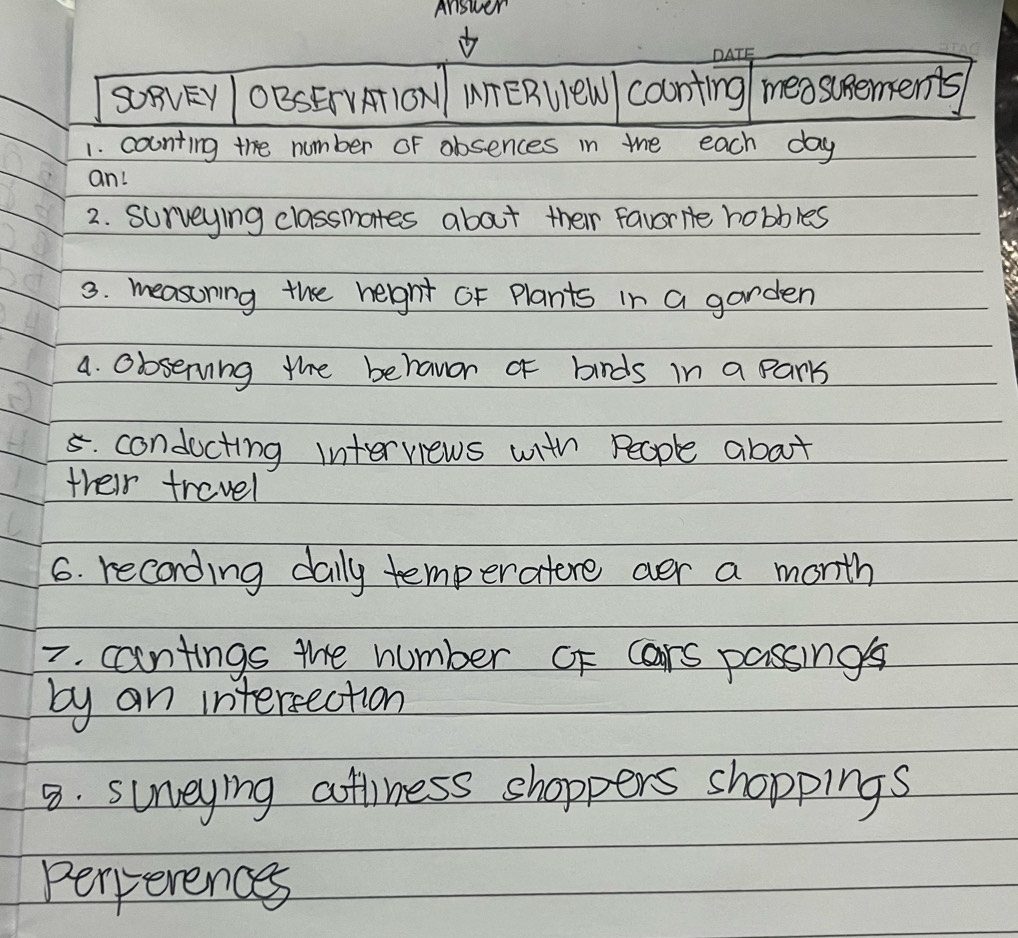 Answer
DATE
SURVEY OBSERVATION INTERVIEW counting measurements
1. counting the number OF absences in the each day
an:
2. surveying classmates about their Favorite hobbies
3. measuring the height OF Plants in a garden
4. Observing the behavior OF birds in a Park
5. conducting interviews with People about
their travel
6. recording daily temperature over a month
7. countings the number OF cars passings
by an intersection
8. surveying shoppers shoppings
Perferences